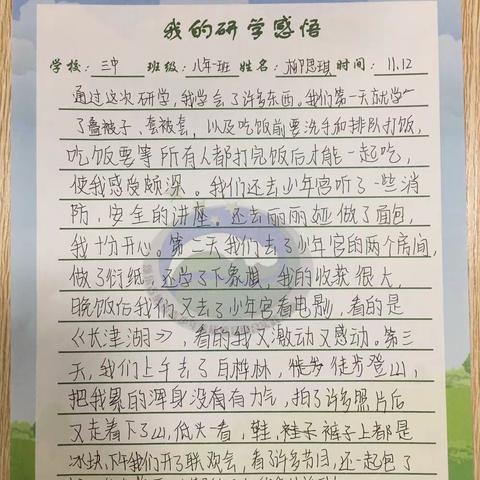 我的研学感悟
学校：三中 班级：八年一班 姓名：柳思琪 时间：11.12
通过这次研学，我学会了许多东西。我们第一天就学
了叠被子、套被套，以及吃饭前要洗手和排队打饭，
吃饭要等所有人都打完饭后才能一起吃，
使我感受颇深。我们还去少年宫听了一些消
防，安全的讲座。还去丽丽娅做了面包，
我十分开心。第二天我们去了少年宫的两个房间，
做了衍纸，还学了下象棋，我的收获很大，
晚饭后我们又去了少年宫看电影，看的是
《长津湖》，看的我又激动又感动。第三
天，我们上午去了白桦林，徒步徒步登山，
把我累的浑身没有有力气，拍了许多照片后
又走着下了山，低头一看，鞋，袜子裤子上都是
冰块，下午我们开了联欢会，看了许多节目，还一起包了